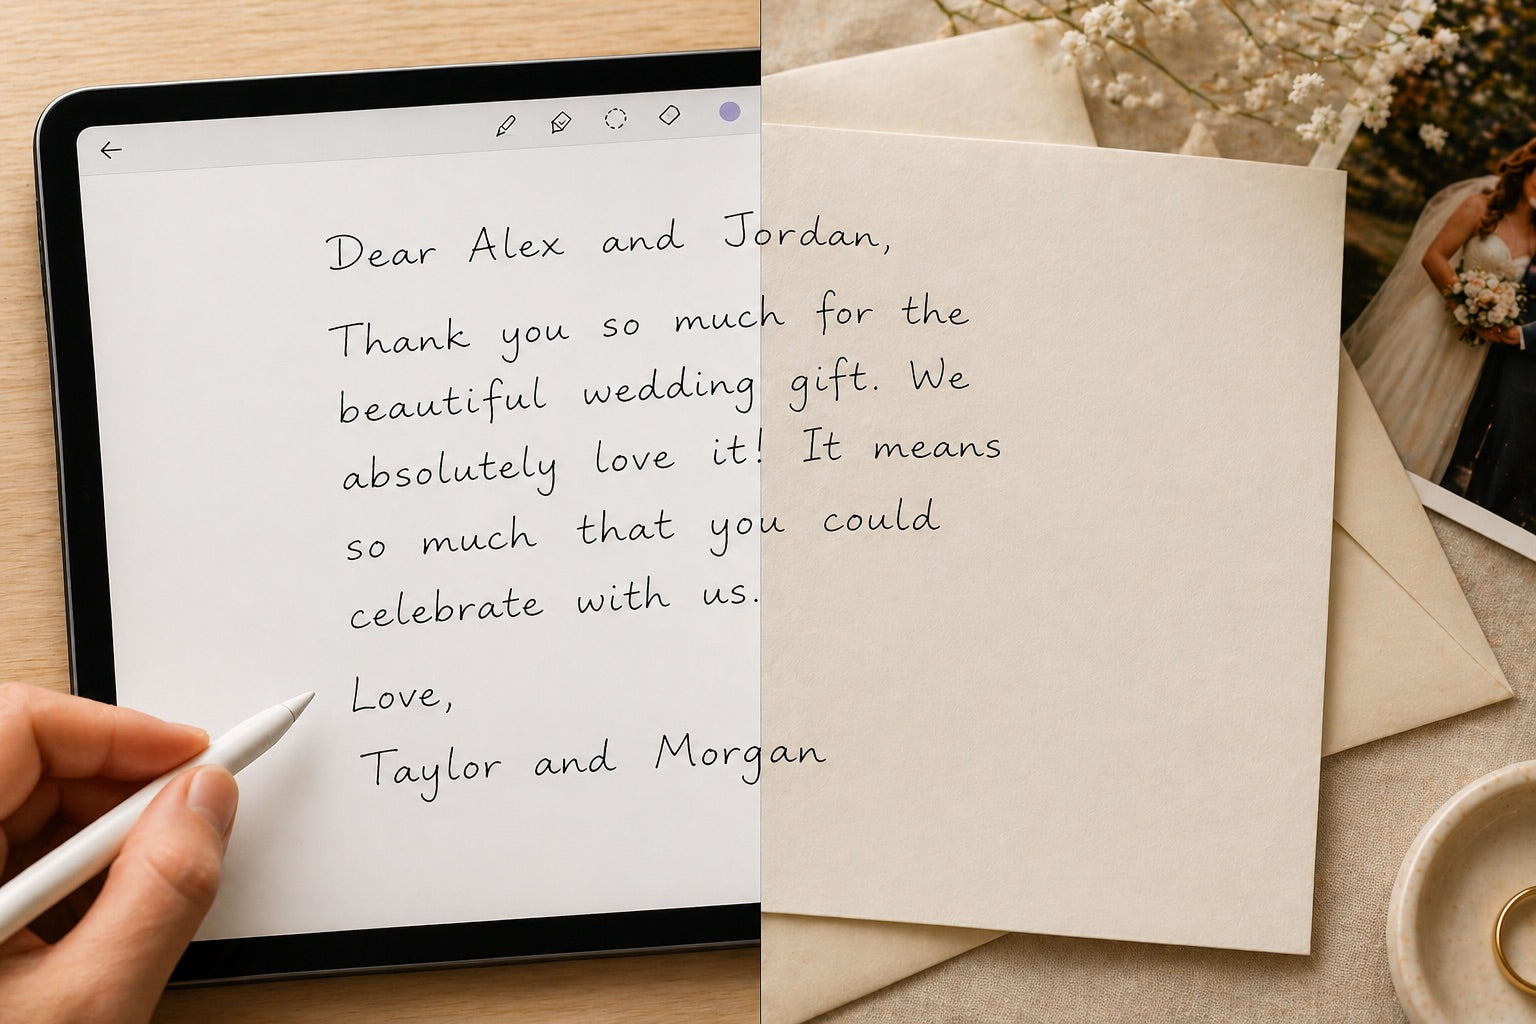 Dear Alex and Jordan,
Thank you so much for the
beautiful wedding gift. We
absolutely love it! It means
so much that you could
celebrate with us.
Love,
Taylor and Morgan